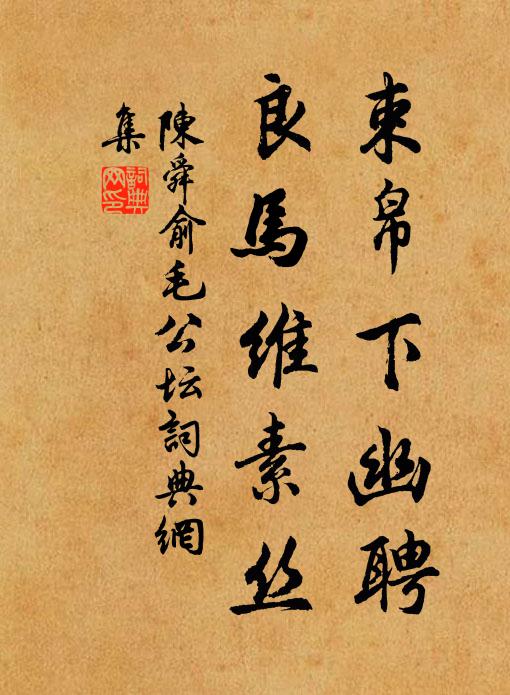 束帛下幽聘
良馬維素丝
陳舜俞毛公坛詞典網
集
詞典
网印